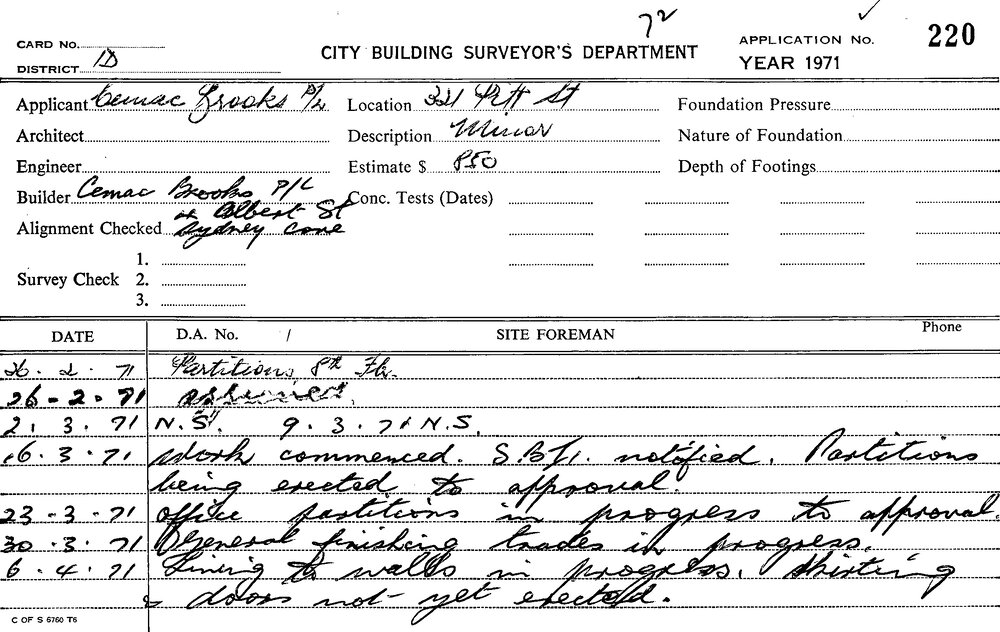 72
CARD No.
DISTRICT D
CITY BUILDING SURVEYOR'S DEPARTMENT
APPLICATION No. 220
YEAR 1971
Applicant Cemac Brooks P/L Location 321 Pitt St Foundation Pressure
Architect Description Minor Nature of Foundation
Engineer Estimate $ 850 Depth of Footings
Builder Cemac Brooks P/L Conc. Tests (Dates)
Albert St
Alignment Checked Sydney Cove
1.
Survey Check 2.
3.
DATE D.A. No. / SITE FOREMAN Phone
26.2.71 Partitions 8th Flr.
26-2-71
2.3.71 N.S. 9.3.71 N.S.
16.3.71 Work commenced. notified. Partitions
being erected to approval.
23-3-71 Office partitions in progress to approval.
30.3.71 General finishing trades in progress.
6.4.71 Lining to walls in progress. Skirting
& doors not yet erected.
C OF S 6760 T6